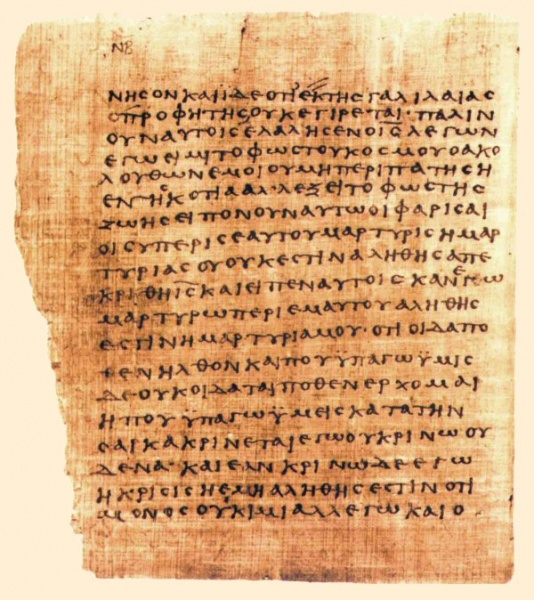 ΝΒ
ΝΗϹΟΝΚΑΙΪΔΕΟΤΙΕΚΤΗϹΓΑΛΙΛΑΙΑϹ
ΟΠΡΟΦΗΤΗϹΟΥΚΕΓΙΡΕΤΑΙ·ΠΑΛΙΝ
ΟΥΝΑΥΤΟΙϹΕΛΑΛΗϹΕΝΟΙϹΛΕΓΩΝ
ΕΓΩΕΙΜΙΤΟΦΩϹΤΟΥΚΟϹΜΟΥΟΑΚΟ
ΛΟΥΘΩΝΕΜΟΙΟΥΜΗΠΕΡΙΠΑΤΗϹΗ
ΕΝΤΗϹΚΟΤΙΑΑΛΛΕΞΕΙΤΟΦΩϹΤΗϹ
ΖΩΗϹΕΙΠΟΝΟΥΝΑΥΤΩΟΙΦΑΡΙϹΑΙ
ΟΙϹΥΠΕΡΙϹΕΑΥΤΟΥΜΑΡΤΥΡΙϹΗΜΑΡ
ΤΥΡΙΑϹΟΥΟΥΚΕϹΤΙΝΑΛΗΘΗϹΑΠΕ
ΚΡΙΘΗΙϹΚΑΙΕΙΠΕΝΑΥΤΟΙϹΚΑΝΕΓΩ
ΜΑΡΤΥΡΩΠΕΡΙΕΜΑΥΤΟΥΑΛΗΘΗϹ
ΕϹΤΙΝΗΜΑΡΤΥΡΙΑΜΟΥΟΤΙΟΙΔΑΠΟ
ΘΕΝΗΛΘΟΝΚΑΙΠΟΥΫΠΑΓΩΫΜΙϹ
ΔΕΟΥΚΟΙΔΑΤΑΙΠΟΘΕΝΕΡΧΟΜΑΙ
ΗΠΟΥΫΠΑΓΩΫΜΕΙϹΚΑΤΑΤΗΝ
ϹΑΡΚΑΚΡΙΝΕΤΑΙΕΓΩΟΥΚΡΙΝΩΟΥ
ΔΕΝΑ·ΚΑΙΕΑΝΚΡΙΝΩΔΕΕΓΩ
ΗΚΡΙϹΙϹΗΕΜΗΑΛΗΘΗϹΕϹΤΙΝΟΤΙ
ΜΟΝΟϹΟΥΚΙΜΙΑΛΛΕΓΩΚΑΙΟ